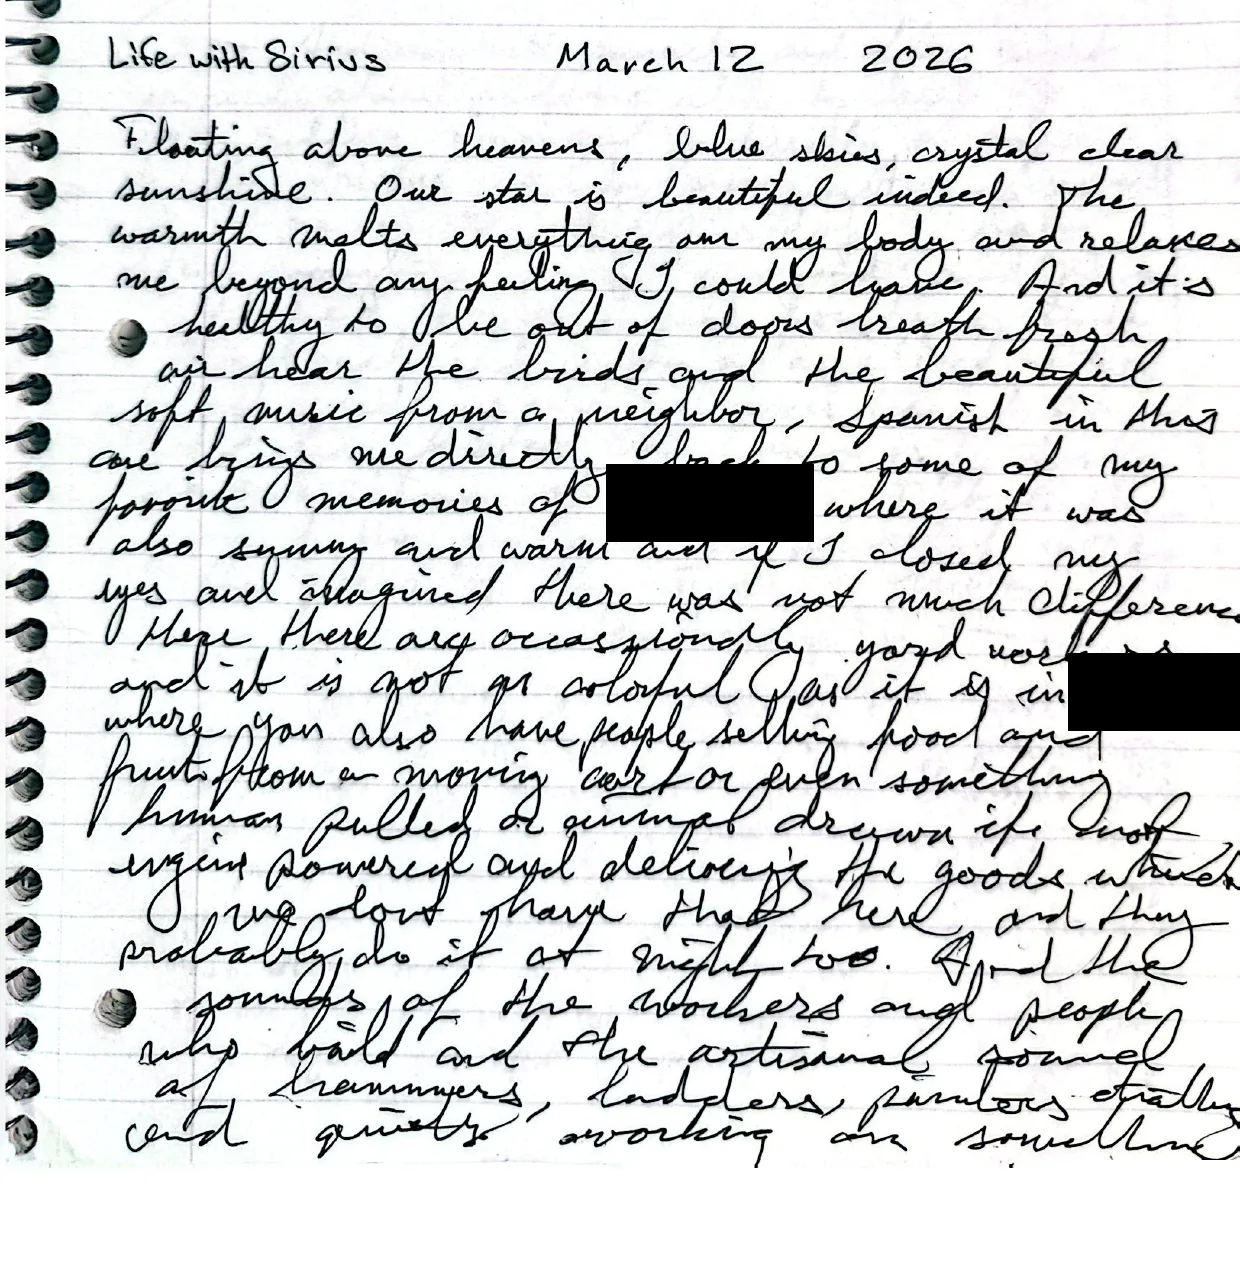 Life with Sirius March 12 2026
Floating above heavens, blue skies, crystal clear
sunshine. Our star is beautiful indeed. The
warmth melts everything on my body and relaxes
me beyond any feeling I could have. And it's
healthy to be out of doors breath fresh
air hear the birds and the beautiful
soft music from a neighbor, Spanish in this
case brings me directly back to some of my
favorite memories of where it was
also sunny and warm and if I closed my
eyes and imagined there was not much difference
Here there are occassionally yard workers
and it is not as colorful as it is in
where you also have people selling food and
fruit from a moving cart or even something
human pulled or animal drawn if not
engine powered and delivering the goods which
we dont have that here and they
probably do it at night too. And the
sounds of the workers and people
who build and the artisanal sound
of hammers, ladders, painters
and quietly working on something